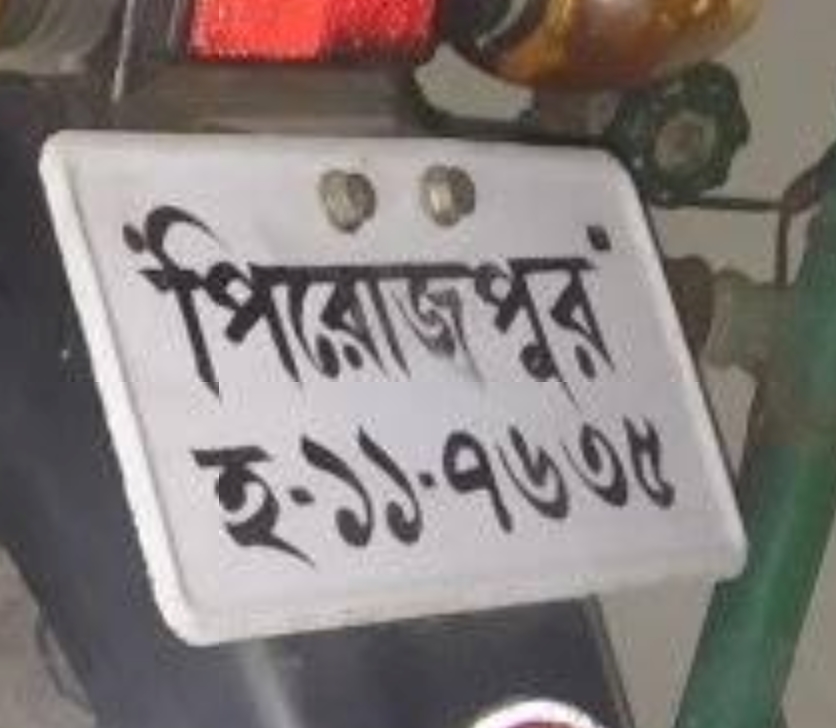 পিরোজপুর
হ-১১-৭৬৩৫